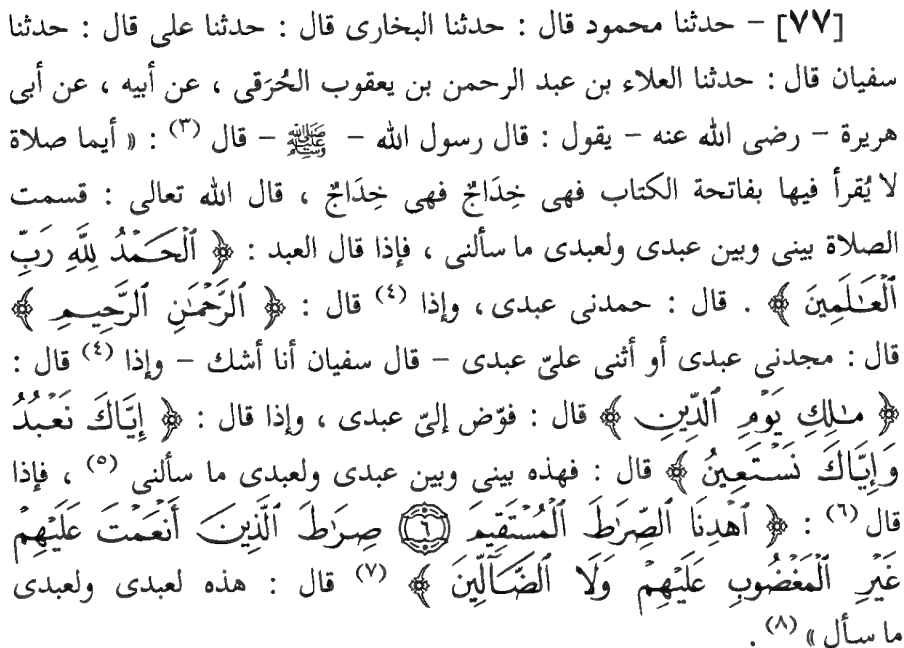 [٧٧] – حدثنا محمود قال : حدثنا البخارى قال : حدثنا على قال : حدثنا
سفيان قال : حدثنا العلاء بن عبد الرحمن بن يعقوب الحُرَقى ، عن أبيه ، عن أبى
هريرة – رضى الله عنه – يقول : قال رسول الله – ﷺ – قال (٣) : « أيما صلاة
لا يُقرأ فيها بفاتحة الكتاب فهى خِدَاجٌ فهى خِدَاجٌ ، قال الله تعالى : قسمت
الصلاة بينى وبين عبدى ولعبدى ما سألنى ، فإذا قال العبد : ﴿ ٱلْحَمْدُ لِلَّهِ رَبِّ
ٱلْعَٰلَمِينَ ﴾ . قال : حمدنى عبدى ، وإذا (٤) قال : ﴿ ٱلرَّحْمَٰنِ ٱلرَّحِيمِ ﴾
قال : مجدنى عبدى أو أثنى علىّ عبدى – قال سفيان أنا أشك – وإذا (٤) قال :
﴿ مَٰلِكِ يَوْمِ ٱلدِّينِ ﴾ قال : فوّض إلىّ عبدى ، وإذا قال : ﴿ إِيَّاكَ نَعْبُدُ
وَإِيَّاكَ نَسْتَعِينُ ﴾ قال : فهذه بينى وبين عبدى ولعبدى ما سألنى (٥) ، فإذا
قال (٦) : ﴿ ٱهْدِنَا ٱلصِّرَٰطَ ٱلْمُسْتَقِيمَ ۝٦ صِرَٰطَ ٱلَّذِينَ أَنْعَمْتَ عَلَيْهِمْ
غَيْرِ ٱلْمَغْضُوبِ عَلَيْهِمْ وَلَا ٱلضَّآلِّينَ ﴾ (٧) قال : هذه لعبدى ولعبدى
ما سأل » (٨) .